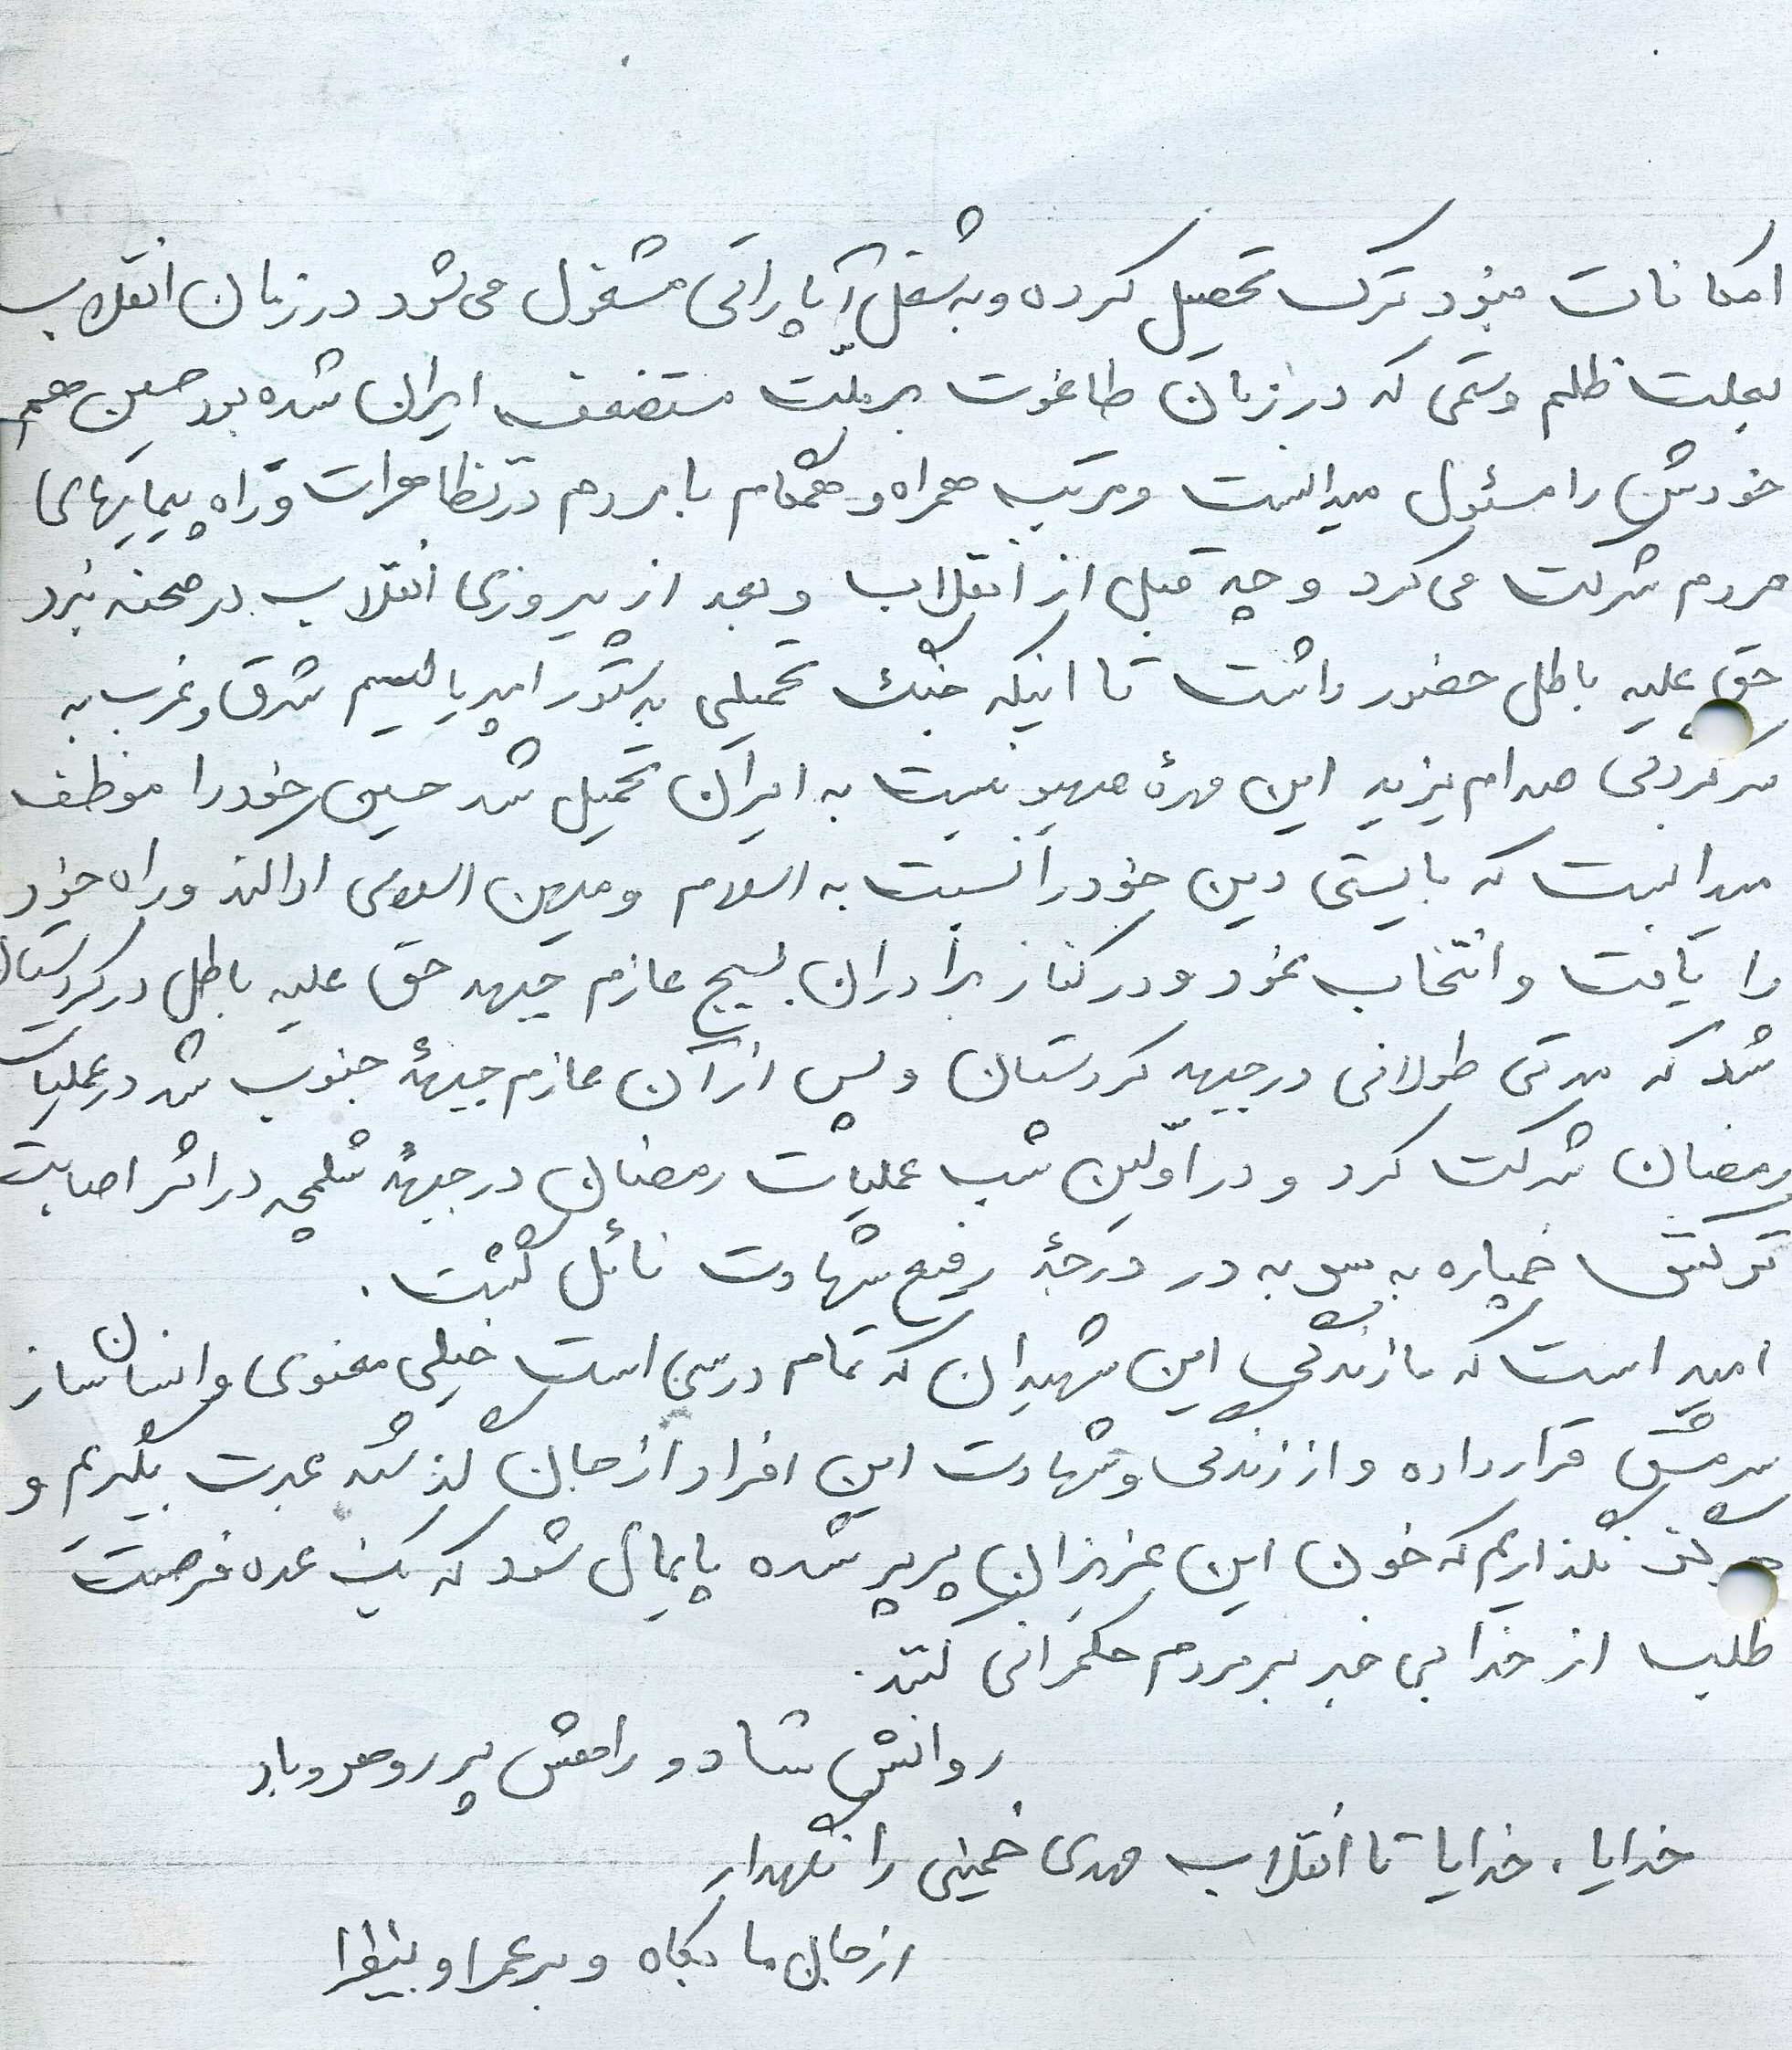 امکانات منزد ترک تحصیل کرده و به شغل آپاراتی مشغول می‌شود در زمان انقلاب
بعلت ظلم و ستمی که در زمان طاغوت بر ملّت مستضعف ایران شده بود حسین هم
خودش را مسئول میدانست و مرتب همراه و همگام با مردم در تظاهرات و راه پیمایهای
مردم شرکت می‌کرد و چه قبل از انقلاب و بعد از پیروزی انقلاب در صحنه نبرد
حق علیه باطل حضور داشت تا اینکه جنگ تحمیلی به دستور امپریالیسم شرق و غرب به
سرکردگی صدام یزید این مهرهٔ صهیونیست به ایران تحمیل شد حسین خود را موظف
میدانست که بایستی دین خود را نسبت به اسلام و میهن اسلامی ادا کند و راه خود
را یافت و انتخاب نمود و در کنار برادران بسیج عازم جبهه حق علیه باطل در کردستان
شد که مدتی طولانی در جبهه کردستان و پس از آن عازم جبههٔ جنوب شد در عملیات
رمضان شرکت کرد و در اوّلین شب عملیات رمضان در جبههٔ شلمچه در اثر اصابت
ترکش خمپاره به سر به درجهٔ رفیع شهادت نائل گشت.
امید است که ما زندگی این شهیدان که تمام درسی است خیلی معنوی و انسان ساز
سرمشق قرار داده و از زندگی و شهادت این افراد از جان گذشته عبرت بگیریم و
هرگز نگذاریم که خون این عزیزان پرپر شده پایمال شود که یک عده فرصت
طلب از خدا بی خبر بر مردم حکمرانی کنند.
روانش شاد و راهش پر رهرو باد
خدایا، خدایا تا انقلاب مهدی خمینی را نگهدار
از جان ما بکاه و بر عمر او بیفزا